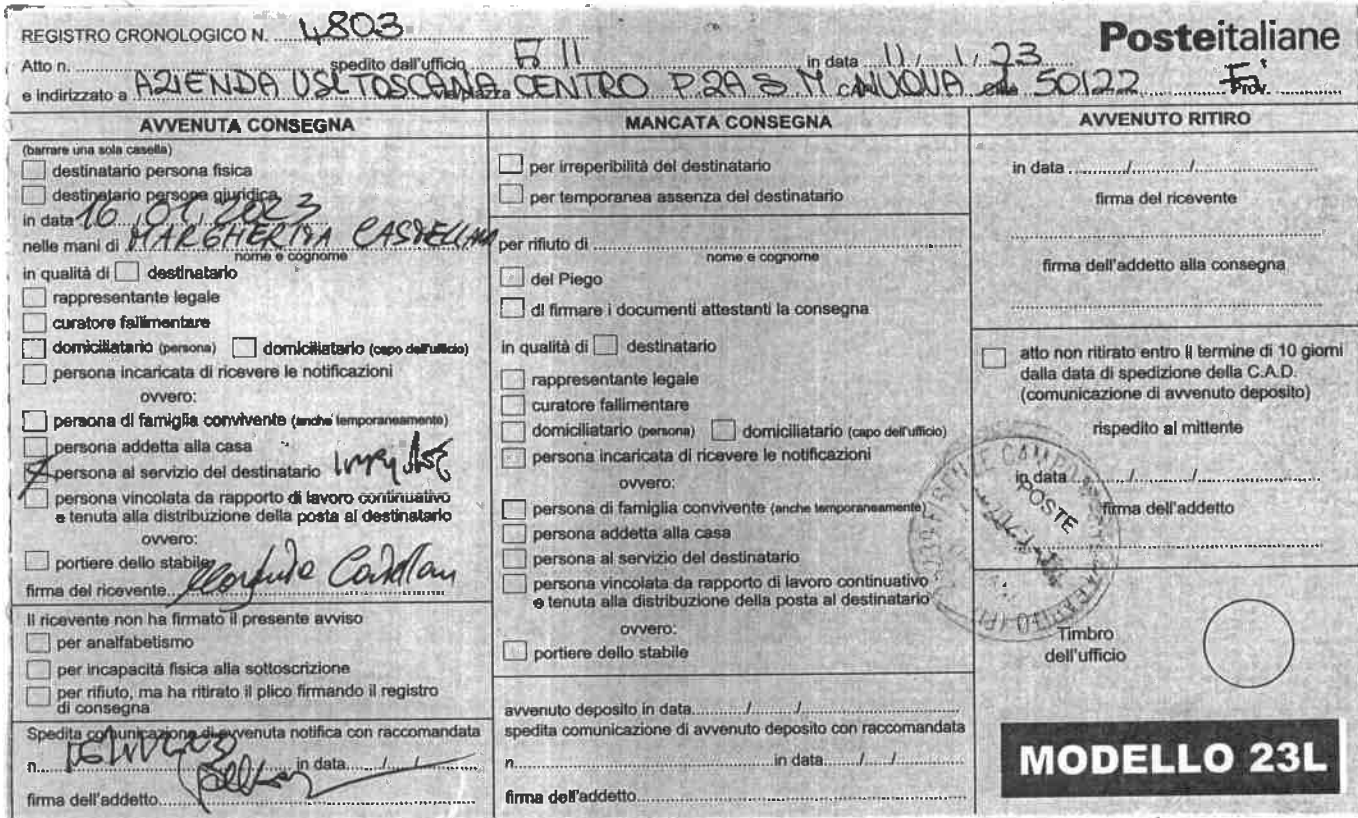 REGISTRO CRONOLOGICO N. 4803
Posteitaliane
Atto n. spedito dall'ufficio in data 11/1/23
e indirizzato a AZIENDA USL TOSCANA CENTRO P.ZA S M NUOVA 50122 Prov.
AVVENUTA CONSEGNA
(barrare una sola casella)
destinatario persona fisica
destinatario persona giuridica
in data 16/01/2023
nelle mani di MARGHERITA
nome e cognome
in qualità di destinatario
rappresentante legale
curatore fallimentare
domiciliatario (persona) domiciliatario (capo dell'ufficio)
persona incaricata di ricevere le notificazioni
ovvero:
persona di famiglia convivente (anche temporaneamente)
persona addetta alla casa
persona al servizio del destinatario
persona vincolata da rapporto di lavoro continuativo
e tenuta alla distribuzione della posta al destinatario
ovvero:
portiere dello stabile
firma del ricevente
Il ricevente non ha firmato il presente avviso
per analfabetismo
per incapacità fisica alla sottoscrizione
per rifiuto, ma ha ritirato il plico firmando il registro
di consegna
Spedita comunicazione di avvenuta notifica con raccomandata
n. in data / /
firma dell'addetto
MANCATA CONSEGNA
per irreperibilità del destinatario
per temporanea assenza del destinatario
per rifiuto di
nome e cognome
del Piego
di firmare i documenti attestanti la consegna
in qualità di destinatario
rappresentante legale
curatore fallimentare
domiciliatario (persona) domiciliatario (capo dell'ufficio)
persona incaricata di ricevere le notificazioni
ovvero:
persona di famiglia convivente (anche temporaneamente)
persona addetta alla casa
persona al servizio del destinatario
persona vincolata da rapporto di lavoro continuativo
e tenuta alla distribuzione della posta al destinatario
ovvero:
portiere dello stabile
avvenuto deposito in data / /
spedita comunicazione di avvenuto deposito con raccomandata
n. in data / /
firma dell'addetto
AVVENUTO RITIRO
in data / /
firma del ricevente
firma dell'addetto alla consegna
atto non ritirato entro il termine di 10 giorni
dalla data di spedizione della C.A.D.
(comunicazione di avvenuto deposito)
rispedito al mittente
in data / /
POSTE
firma dell'addetto
Timbro
dell'ufficio
MODELLO 23L